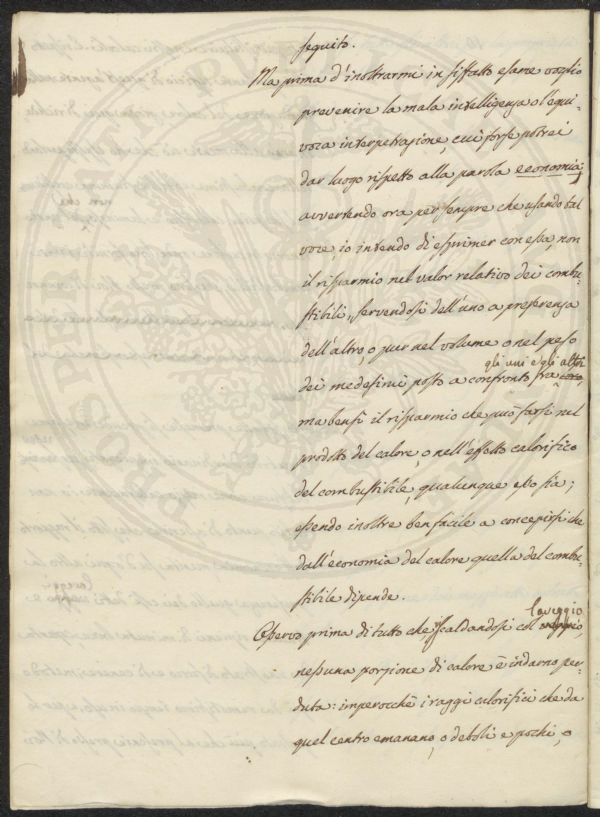 seguito.
Ma prima d'inoltrarmi in siffatto esame voglio
prevenire la mala intelligenza o l'equi-
voca interpetrazione, cui forse potrei
dar luogo rispetto alla parola economia;
avvertendo ora per sempre che usando tal
voce, io intendo di esprimer con essa, non
il risparmio nel valor relativo dei combu-
stibili, servendosi dell'uno a preferenza
dell'altro, o pur nel volume o nel peso
gli uni e gli altri
dei medesimi posto a confronto fra loro,
ma bensì il risparmio che può farsi nel
prodotto del calore, o nell'effetto calorifico
del combustibile, qualunque esso sia;
essendo inoltre ben facile a concepirsi che
dall'economia del calore quella del combu-
stibile dipende.
laveggio
Osservo prima di tutto che, scaldandosi col veggio,
nessuna porzione di calore è indarno per-
duta: imperocchè i raggi calorifici che da
quel centro emanano, o deboli e pochi, o